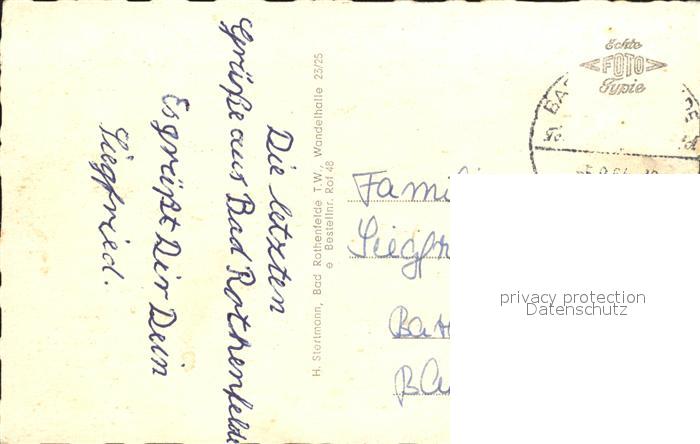 Die letzten
Grüße aus Bad Rothenfelde
Es grüßt Dir Dein
Siegfried.
H. Stortmann, Bad Rothenfelde T.W., Wandelhalle 23/25
e Bestellnr. Rof 48
Echte
FOTO
Typie
BAD
DE
Fami
Siegfr
privacy protection
Datenschutz